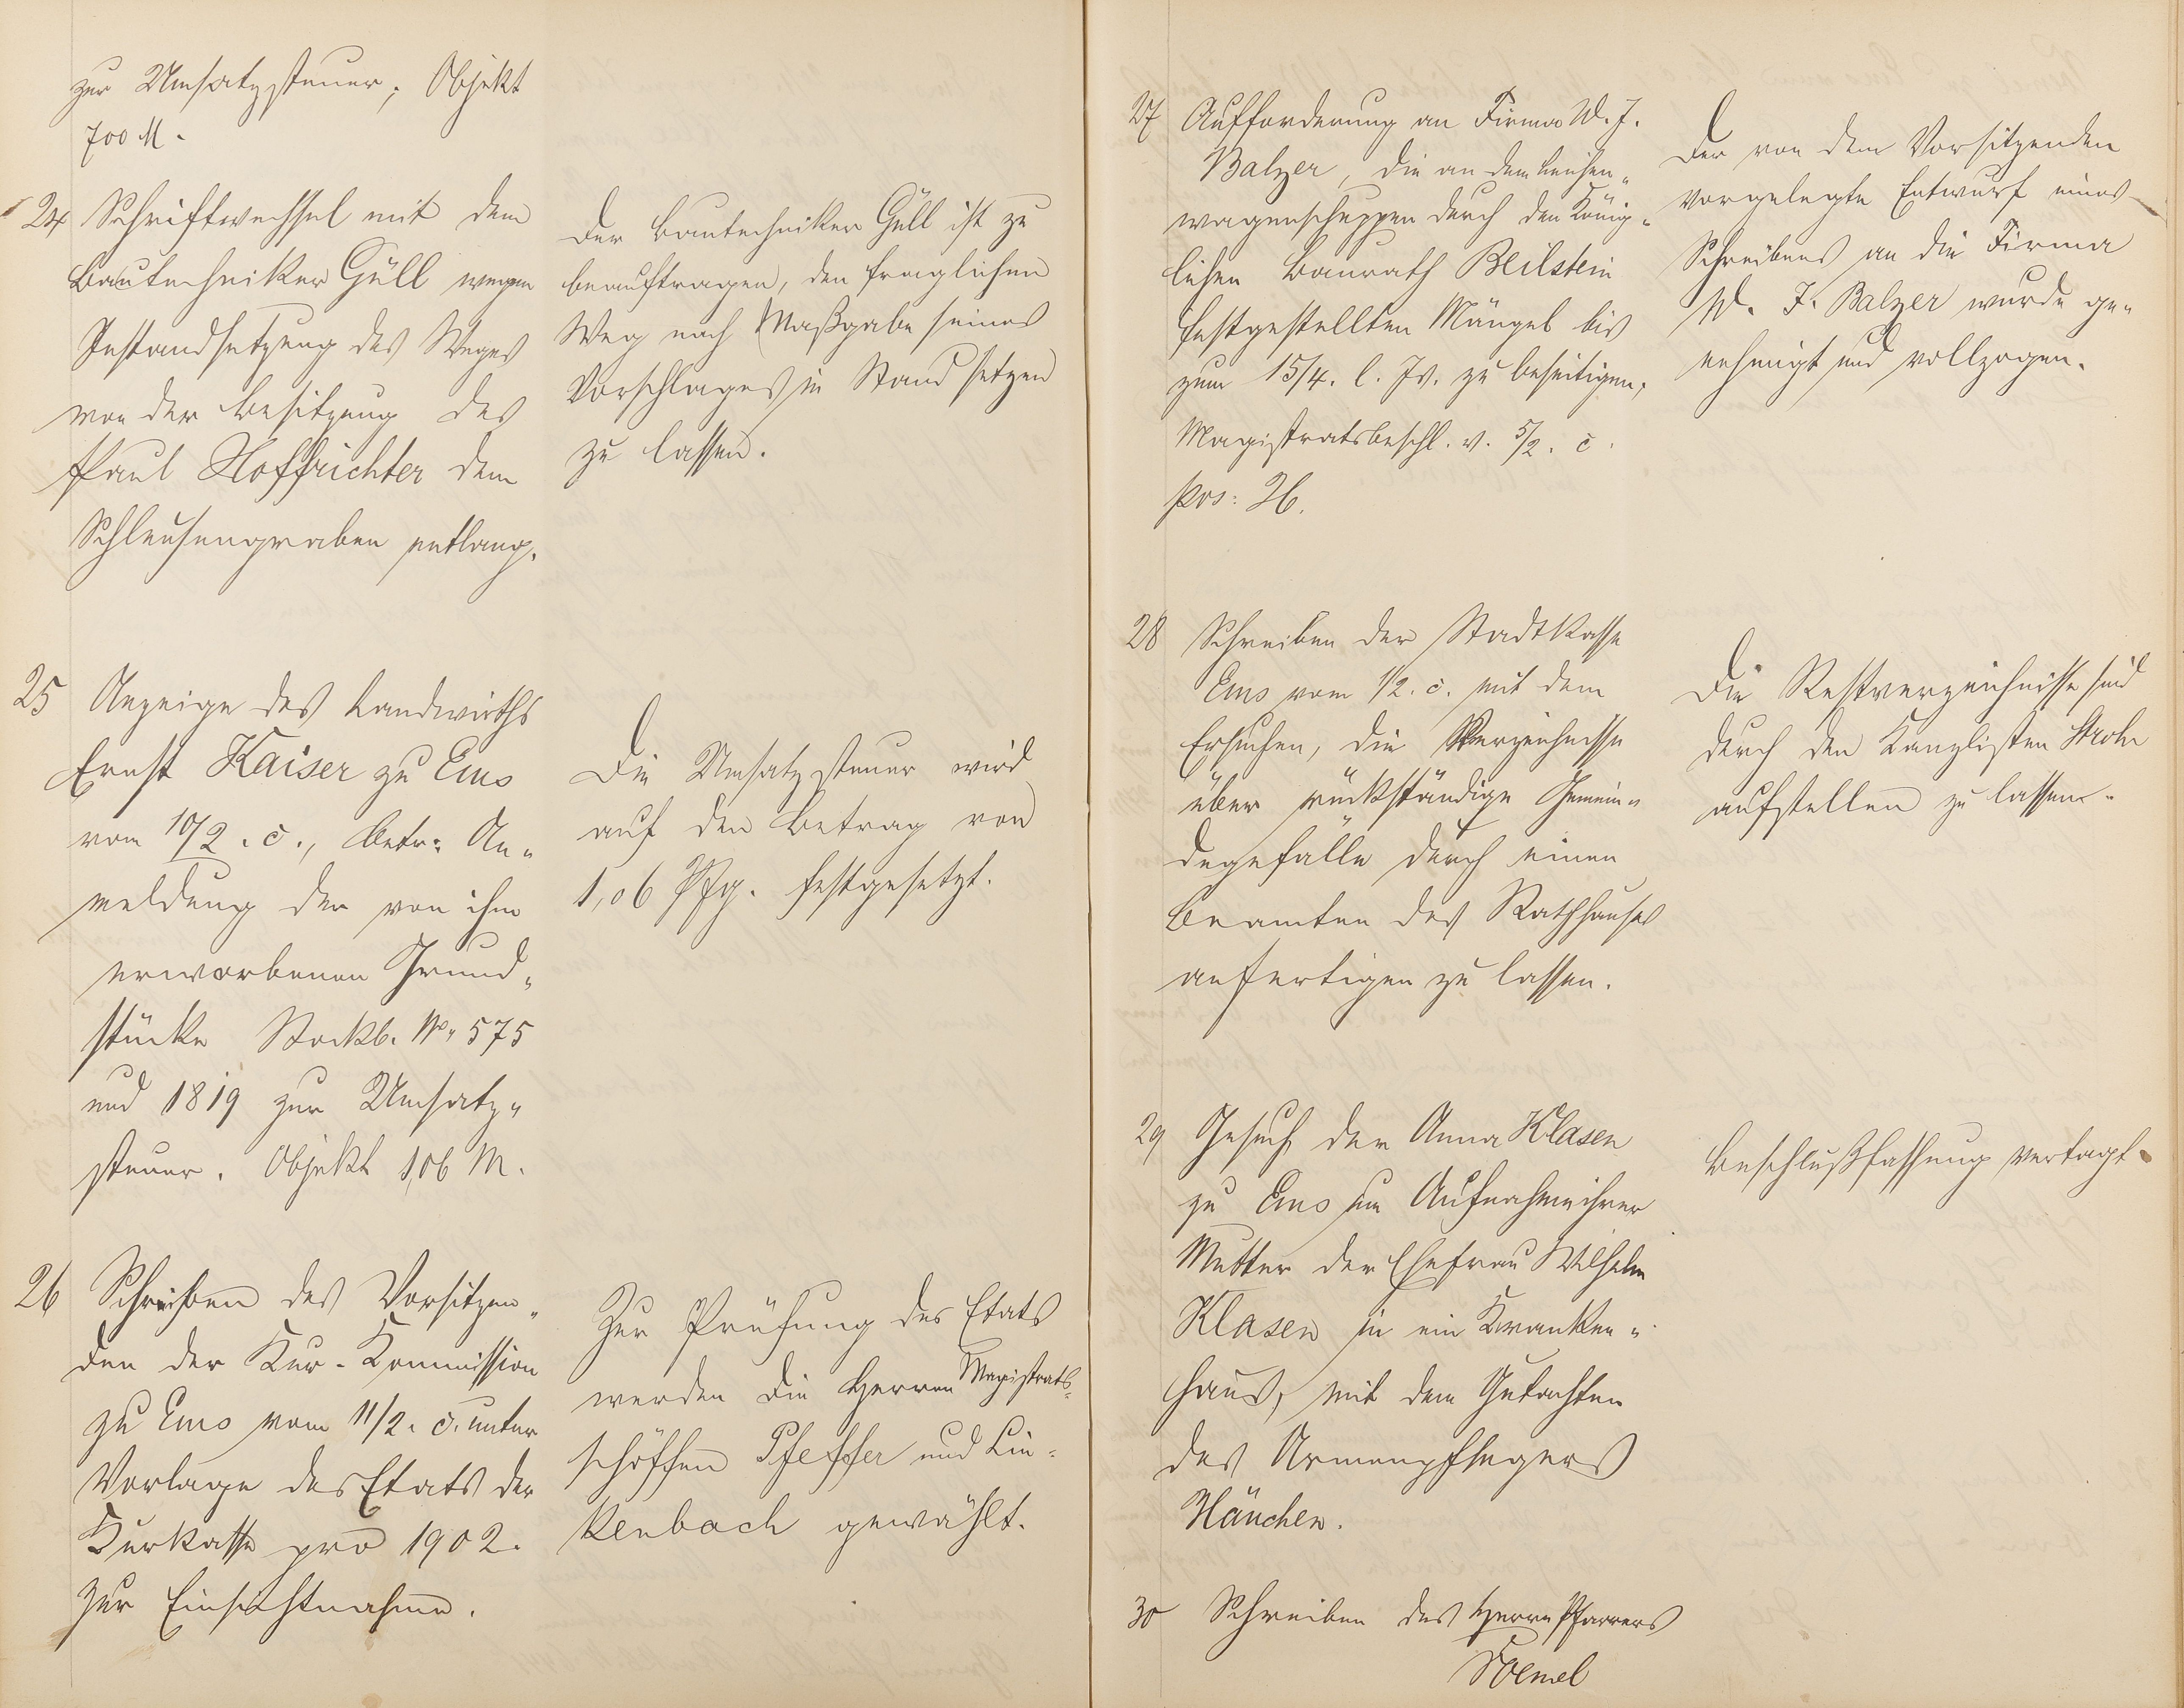 zur Umsatzsteuer; Objekt
700 M.
24 Schriftwechsel mit dem
Bautechniker Güll wegen
Instandsetzung des Weges
von der Besitzung des
Paul Hoffrichter dem
Schleusengraben entlang.
Der Bautechniker Güll ist zu
beauftragen, den fraglichen
Weg nach Maßgabe seines
Vorschlages in Stand setzen
zu lassen.
25 Anzeige des Landwirths
Ernst Kaiser zu Ems
vom 10/2. c., betr: An„
meldung der von ihm
erworbenen Grund„
stücke Stockb. No. 575
und 1819 zur Umsatz„
steuer. Objekt 106 M.
Die Umsatzsteuer wird
auf den Betrag von
1,06 Pfg. festgesetzt.
26 Schreiben des Vorsitzen„
den der Kur-Kommission
zu Ems vom 11/2. c. unter
Vorlage des Etats der
Kurkasse pro 1902.
zur Einsichtnahme.
Zur Prüfung des Etats
werden die Herren Magistrats„
schöffen Pfeffer und Lin„
kenbach gewählt.
27 Aufforderung an Firma W. J.
Balzer, die an dem Leichen„
wagenschuppen durch den König„
lichen Baurath Beilstein
festgestellten Mängel bis
zum 15/4. l. Js. zu beseitigen;
Magistratsbeschl. v. 5/2. c.
pos: 26.
Der von dem Vorsitzenden
vorgelegte Entwurf eines
Schreibens an die Firma
W. J. Balzer wurde ge„
nehmigt und vollzogen.
28 Schreiben der Stadtkasse
Ems vom 1/2. c. mit dem
Ersuchen, die Verzeichnisse
über rückständige Gemein„
degefälle durch einen
Beamten des Rathhauses
anfertigen zu lassen.
Die Restverzeichnisse sind
durch den Kanzlisten Stroh
aufstellen zu lassen.
29 Gesuch der Anna Klasen
zu Ems um Aufnahme ihrer
Mutter der Ehefrau Wilhelm
Klasen in ein Kranken„
haus, mit dem Gutachten
des Armenpflegers
Hänchen.
Beschlußfassung vertagt.
30 Schreiben des Herrn Pfarrers